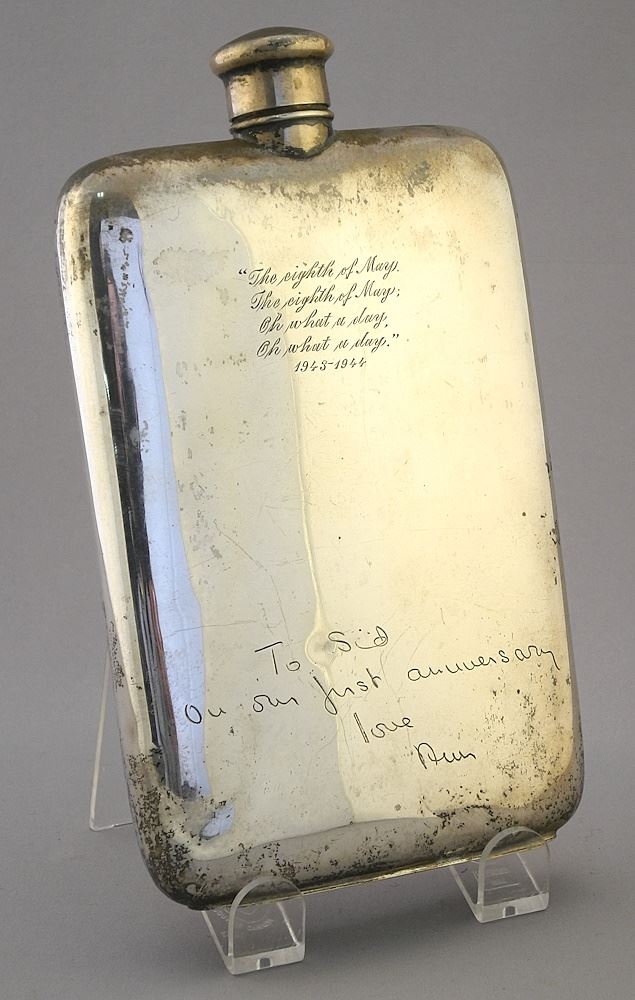 “The eighth of May.
The eighth of May;
Oh what a day,
Oh what a day.”
1943-1944
To Sid
On our first anniversary
love
Ann